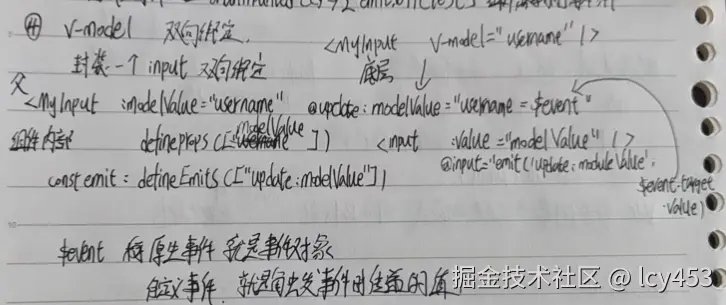 ④ v-model 双向绑定.
<MyInput v-model="username" />
封装一个 input 双向绑定
底层
父
<MyInput :modelValue="username" @update:modelValue="username = $event"
组件内部 defineProps([modelValue]) <input :value="modelValue" />
@input="emit('update:moduleValue',
$event.target.value)
const emit = defineEmits(["update:modelValue"])
$event 原生事件 就是事件对象
自定义事件 就是触发事件时传递的值
掘金技术社区 @ lcy453